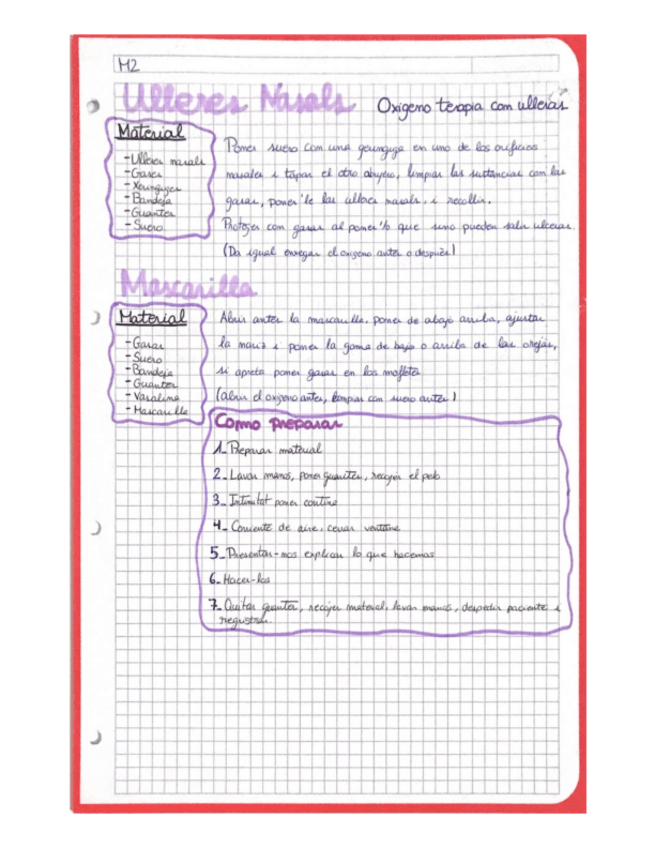 M2
Ulleres Nasals Oxigeno terapia com ulleras
Material
- Ulleres nasals
- Gases
- Xeringues
- Bandeja
- Guantes
- Suero
Poner suero com una geringga en uno de los orificios
nasales i tapar el otro abujero, limpiar las sustancias con las
gasas, poner'le las ulleres nasals, i recollir.
Proteger con gasas al poner'lo que sino pueden salir ulceras.
(Da igual enregar el oxigeno antes o después)
Mascarilla
Material
- Gasas
- Suero
- Bandeja
- Guantes
- Vasalina
- Mascarilla
Abrir antes la mascarilla, poner de abajo arriba, ajustar
la nariz i poner la goma de bajo o arriba de las orejas,
si apreta poner gasas en los mofletes
(abrir el oxigeno antes, limpiar con suero antes)
Como preparar
1_ Preparar material
2_ Lavar manos, poner guantes, recojer el pelo
3_ Intimitat poner cortina
4_ Corriente de aire, cerrar ventana
5_ Presentar-nos explicar lo que hacemos
6_ Hacer-los
7_ Quitar guantes, recojer material, lavar manos, despedir paciente i
registrar.